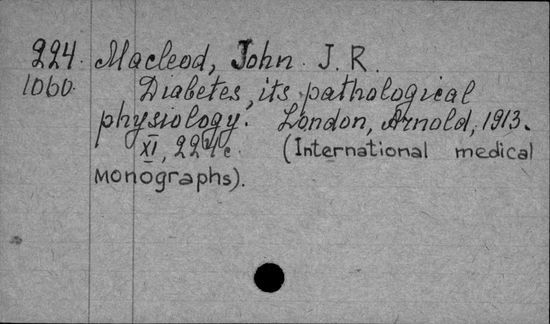 224. Macleod, John J. R.
1060. Diabetes, its pathological
physiology. London, Arnold, 1913.
XI, 224 c. (International medical
monographs).